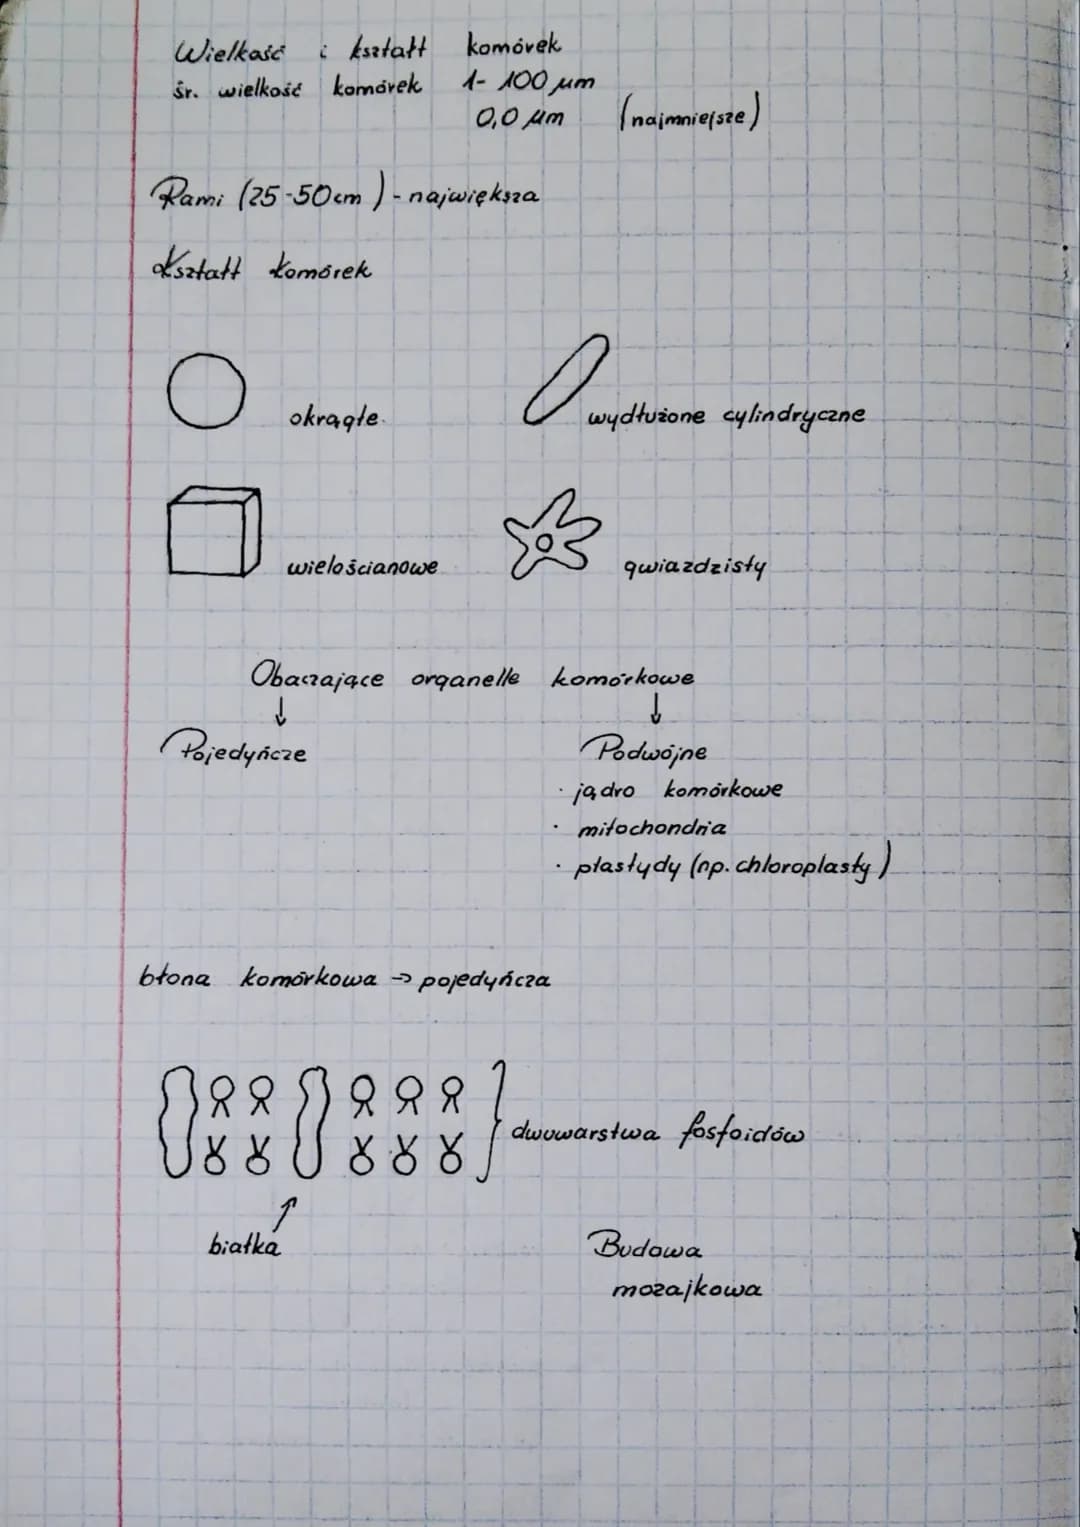 Wielkość i kształt komórek
śr. wielkość komórek 1- 100 µm
0,0 µm (najmniejsze)
Rami (25-50cm) - największa
Kształt komórek
okrągłe
wydłużone cylindryczne
wielościanowe
gwiazdzisty
Obaczające organelle komórkowe
↓ ↓
Pojedyńcze
Podwójne
· jądro komórkowe
· mitochondria
· plastydy (np. chloroplasty)
błona komórkowa → pojedyńcza
dwuwarstwa fosfoidów
białka
Budowa
mozajkowa